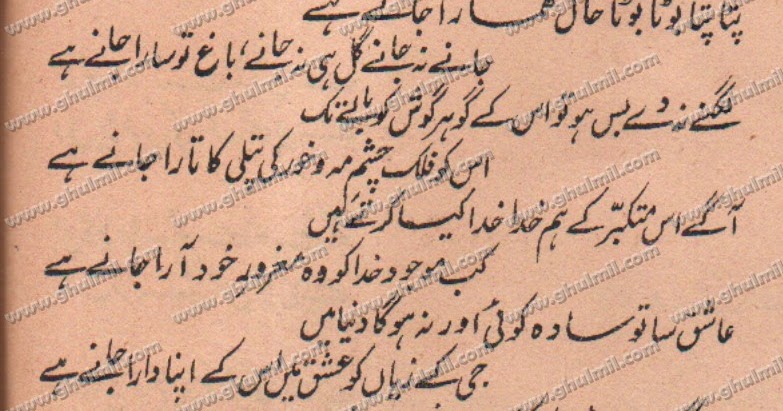 پتا پتا بوٹا بوٹا حال ہمارا جانے ہے
جانے نہ جانے گل ہی نہ جانے، باغ تو سارا جانے ہے
لگنے نہ دے بس ہو تو اس کے گوہر گوش کو بالے تک
اس کو فلک چشم مہ و خور کی پتلی کا تارا جانے ہے
آگے اس متکبّر کے ہم خدا خدا کیا کرتے ہیں
کب موجود خدا کو وہ مغرور خود آرا جانے ہے
عاشق سا تو سادہ کوئی اور نہ ہوگا دنیا میں
جی کے زیاں کو عشق میں اس کے اپنا وارا جانے ہے
www.ghulmil.com